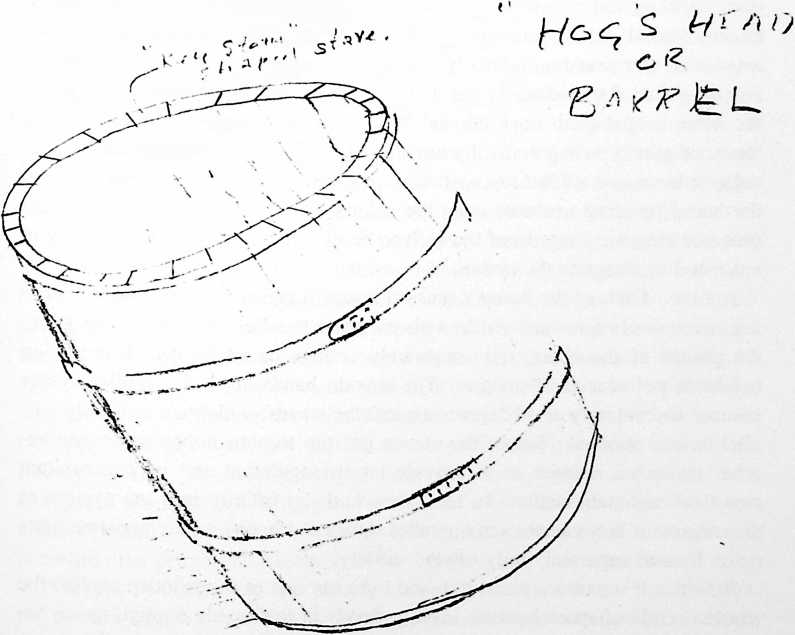 "Key Stone"
shaped stave.
" HOGS HEAD
OR
BARREL